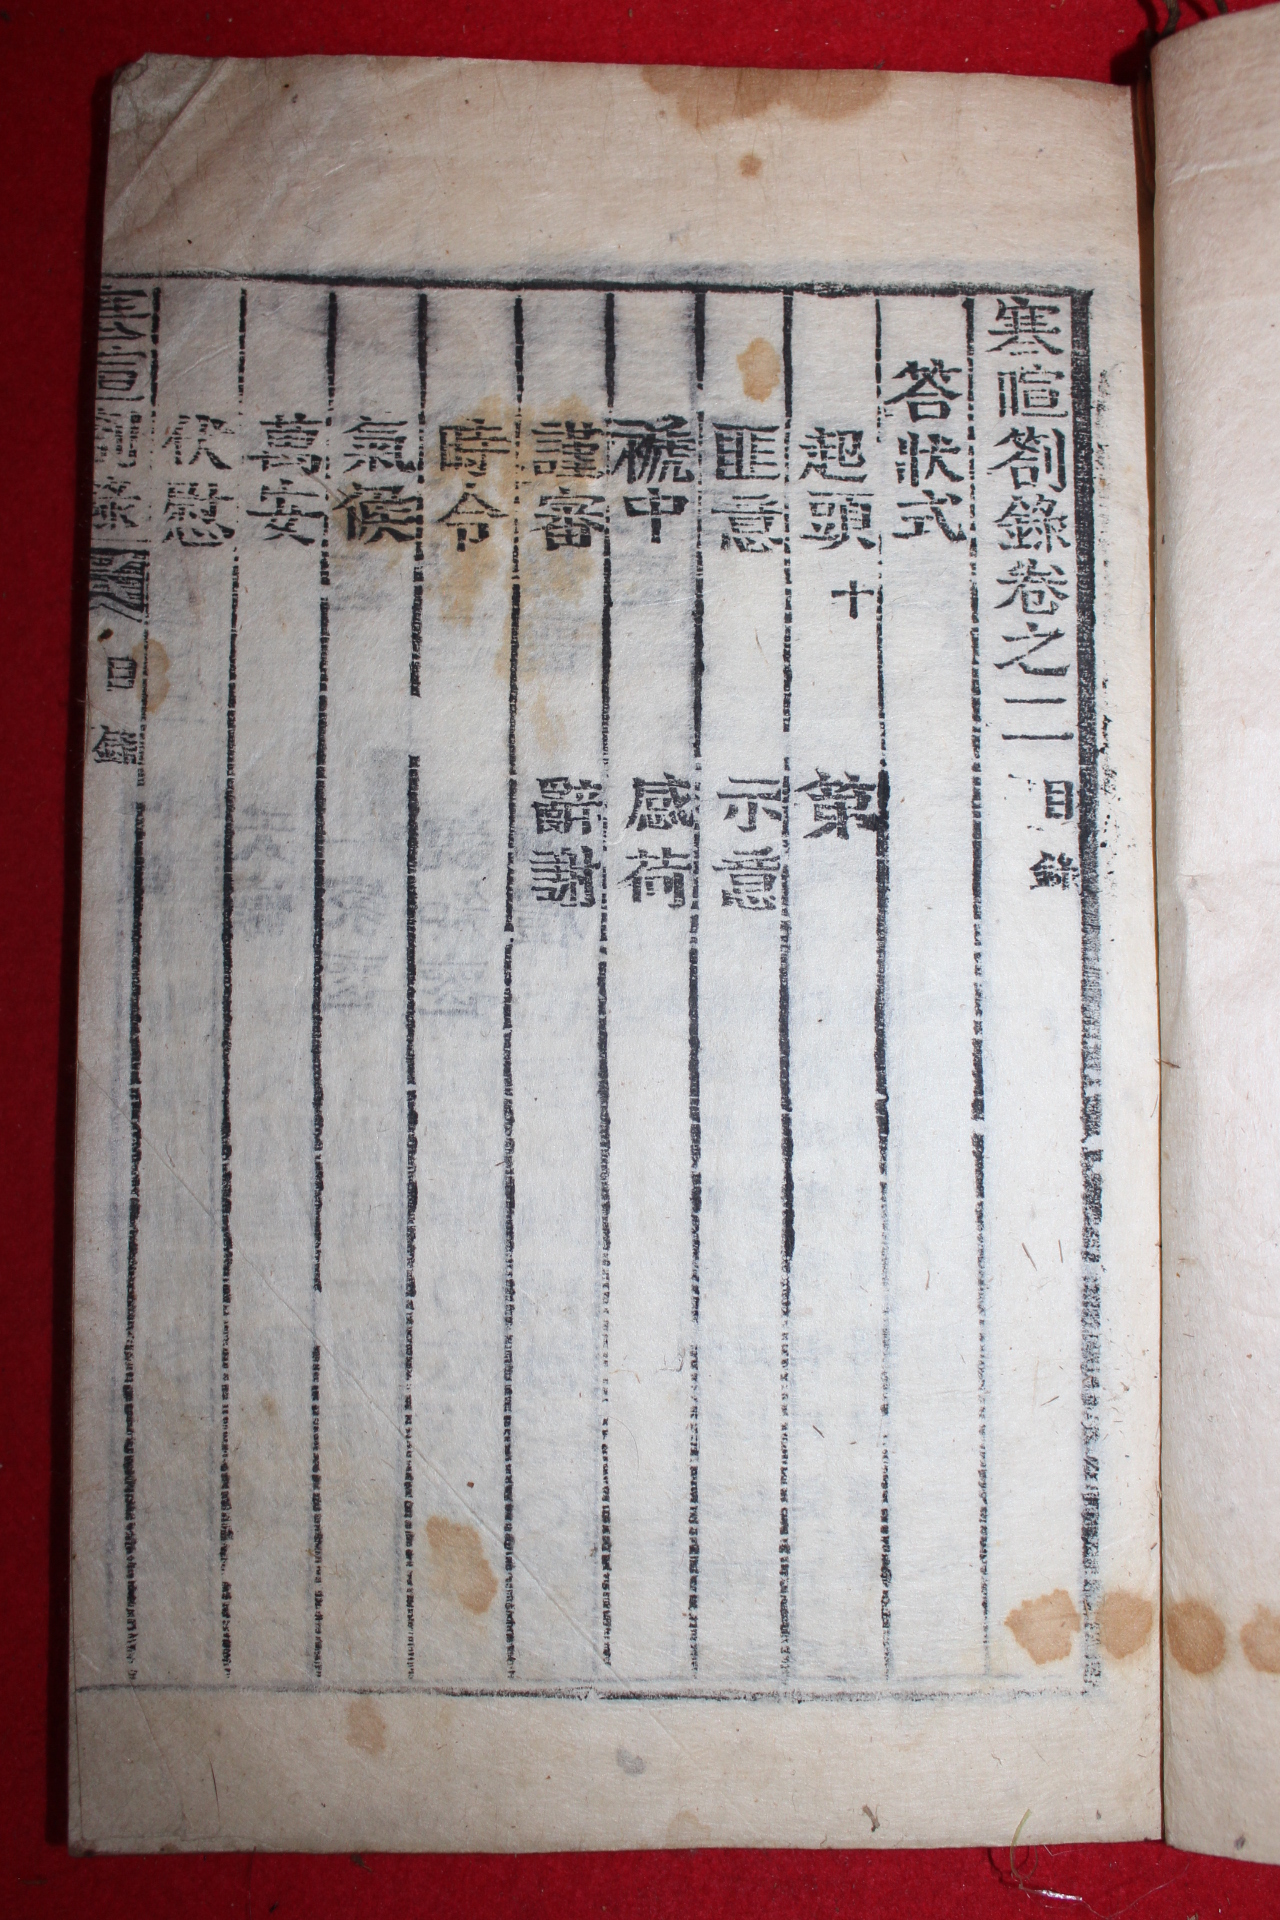 寒暄箚錄卷之二 目錄
答狀式
起頭 十 第
匪意 示意
褫中 感荷
謹審 辭謝
時令
氣候
萬安
伏慰
寒暄箚錄 卷二 目錄